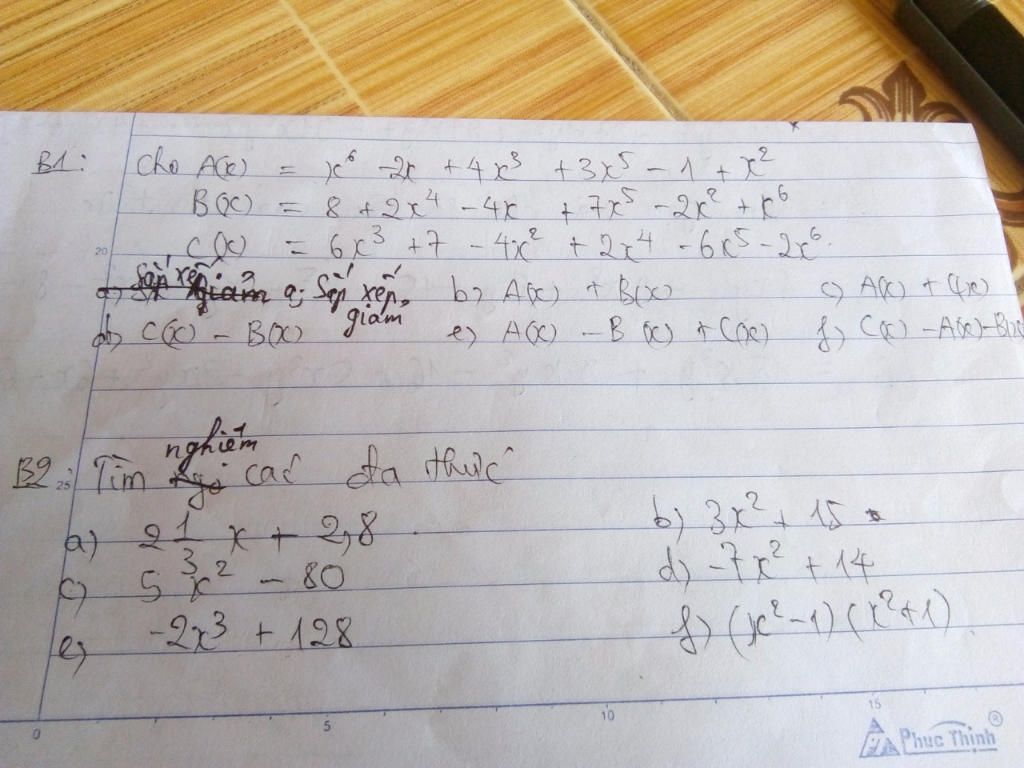 B1: Cho A(x) = x⁶ - 2x + 4x³ + 3x⁵ - 1 + x²
B(x) = 8 + 2x⁴ - 4x + 7x⁵ - 2x² + x⁶
C(x) = 6x³ + 7 - 4x² + 2x⁴ - 6x⁵ - 2x⁶.
a; Sắp xếp giảm b) A(x) + B(x) c) A(x) + C(x)
d) C(x) - B(x) e) A(x) - B(x) + C(x) f) C(x) - A(x) - B(x)
B2: Tìm nghiệm các đa thức
a) 2 1/3 x + 2,8 b) 3x² + 15
c) 5x² - 80 d) -7x² + 14
e) -2x³ + 128 f) (x² - 1)(x² + 1)
20
25
0 5 10 15
Phuc Thinh ®